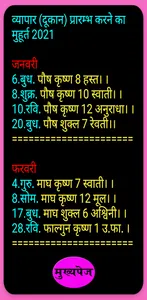 व्यापार (दूकान) प्रारम्भ करने का
मुहूर्त 2021
जनवरी
6.बुध. पौष कृष्ण 8 हस्त।।
8.शुक्र. पौष कृष्ण 10 स्वाती।।
10.रवि. पौष कृष्ण 12 अनुराधा।।
20.बुध. पौष शुक्ल 7 रेवती।।
======================
फरवरी
4.गुरु. माघ कृष्ण 7 स्वाती।।
8.सोम. माघ कृष्ण 12 मूल।।
17.बुध. माघ शुक्ल 6 अश्विनी।।
28.रवि. फाल्गुन कृष्ण 1 उ.फा. ।
======================
मुख्यपेज